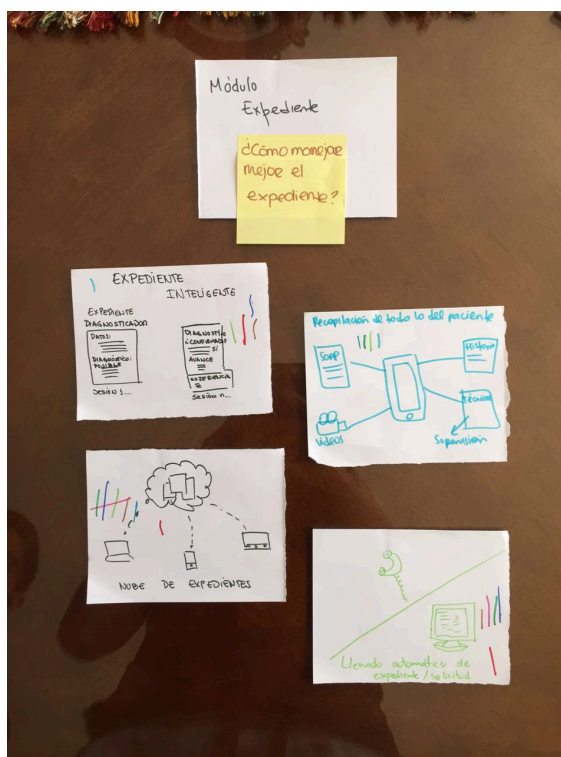 Módulo
Expediente
¿Cómo manejar
mejor el
expediente?
EXPEDIENTE
INTELIGENTE
EXPEDIENTE
DIAGNOSTICADOR
DATOS:
DIAGNÓSTICO:
POSIBLE
SESIÓN 1...
DIAGNOSTICO
¿CONFIRMADO?
SÍ
AVANCE
SUGERENCIA
SESIÓN n...
Recopilación de todo lo del paciente
SOAP
Historia
Videos
Técnicas
Supervisión
NUBE DE EXPEDIENTES
Llenado automático de
expediente / solicitud